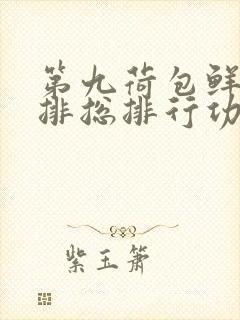 第九荷包鲜
排总排行功
紫玉箫